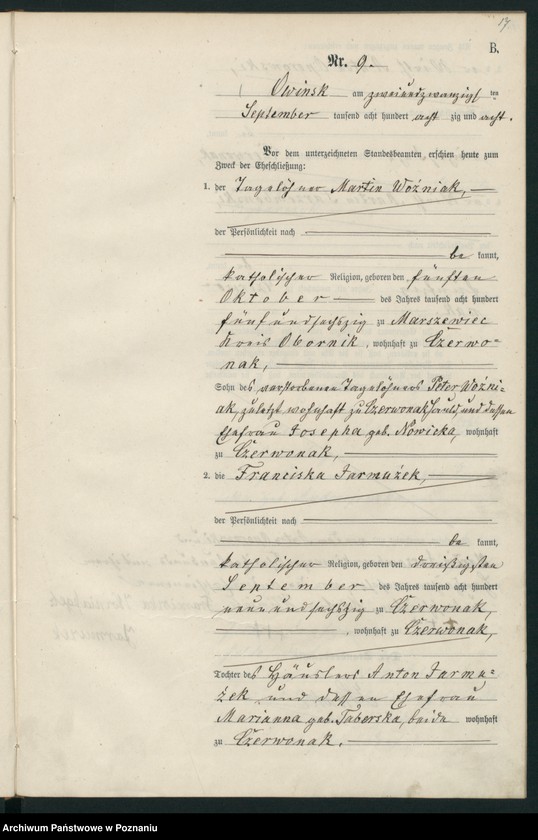 17
B.
Nr. 9.
Owinsk am zweiundzwanzigsten
September tausend acht hundert acht zig und acht.
Vor dem unterzeichneten Standesbeamten erschien heute zum
Zweck der Eheschließung:
1. der Tagelöhner Martin Woźniak,
der Persönlichkeit nach
be kannt,
katholischer Religion, geboren den fünften
Oktober des Jahres tausend acht hundert
fünf und sechszig zu Marszewiec
Kreis Obornik, wohnhaft zu Czerwo-
nak,
Sohn des verstorbenen Tagelöhners Peter Woźni-
ak, zuletzt wohnhaft zu Czerwonak und dessen
Ehefrau Josepha geb. Nowicka, wohnhaft
zu Czerwonak,
2. die Franciska Jarmużek,
der Persönlichkeit nach
be kannt,
katholischer Religion, geboren den dreißigsten
September des Jahres tausend acht hundert
neun und sechszig zu Czerwonak,
, wohnhaft zu Czerwonak,
Tochter des Häuslers Anton Jarmu-
żek und dessen Ehefrau
Marianna geb. Taberska, beide wohnhaft
zu Czerwonak.
Archiwum Państwowe w Poznaniu